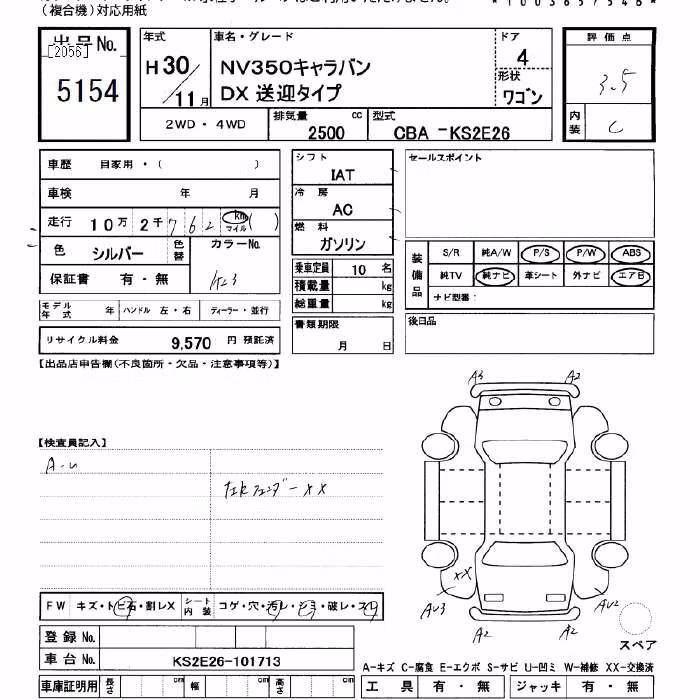 （複合機）対応用紙
出品No.
[2056]
5154
年式
H30/11月
車名・グレード
NV350キャラバン
DX 送迎タイプ
ドア
4
形状
ワゴン
評価点
3.5
内装
C
2WD・4WD
排気量 2500 cc
型式 CBA -KS2E26
車歴 自家用・( )
車検 年 月
走行 10万2千762 km マイル ( )
色 シルバー 色替 カラーNo.
保証書 有・無
モデル年式 年 ハンドル 左・右 ディーラー・並行
リサイクル料金 9,570 円 預託済
シフト
IAT
冷房
AC
燃料
ガソリン
乗車定員 10 名
積載量 kg
総重量 kg
書類期限
月 日
セールスポイント
装備品
S/R 純A/W P/S P/W ABS
純TV 純ナビ 革シート 外ナビ エアB
ナビ型番：
後日品
【出品店申告欄(不良箇所・欠品・注意事項等)】
【検査員記入】
A-u
左Rフェンダー XX
A3 A2
XX
AU3 A2 A2 AU2
スペア
FW キズ・トビ石・割レX シート内装 コゲ・穴・汚レ・シミ・破レ・スレ
登録No.
車台No. KS2E26-101713
車庫証明用 長さ cm 幅 cm 高さ cm
A-キズ C-腐食 E-エクボ S-サビ U-凹ミ W-補修 XX-交換済
工具 有・無 ジャッキ 有・無